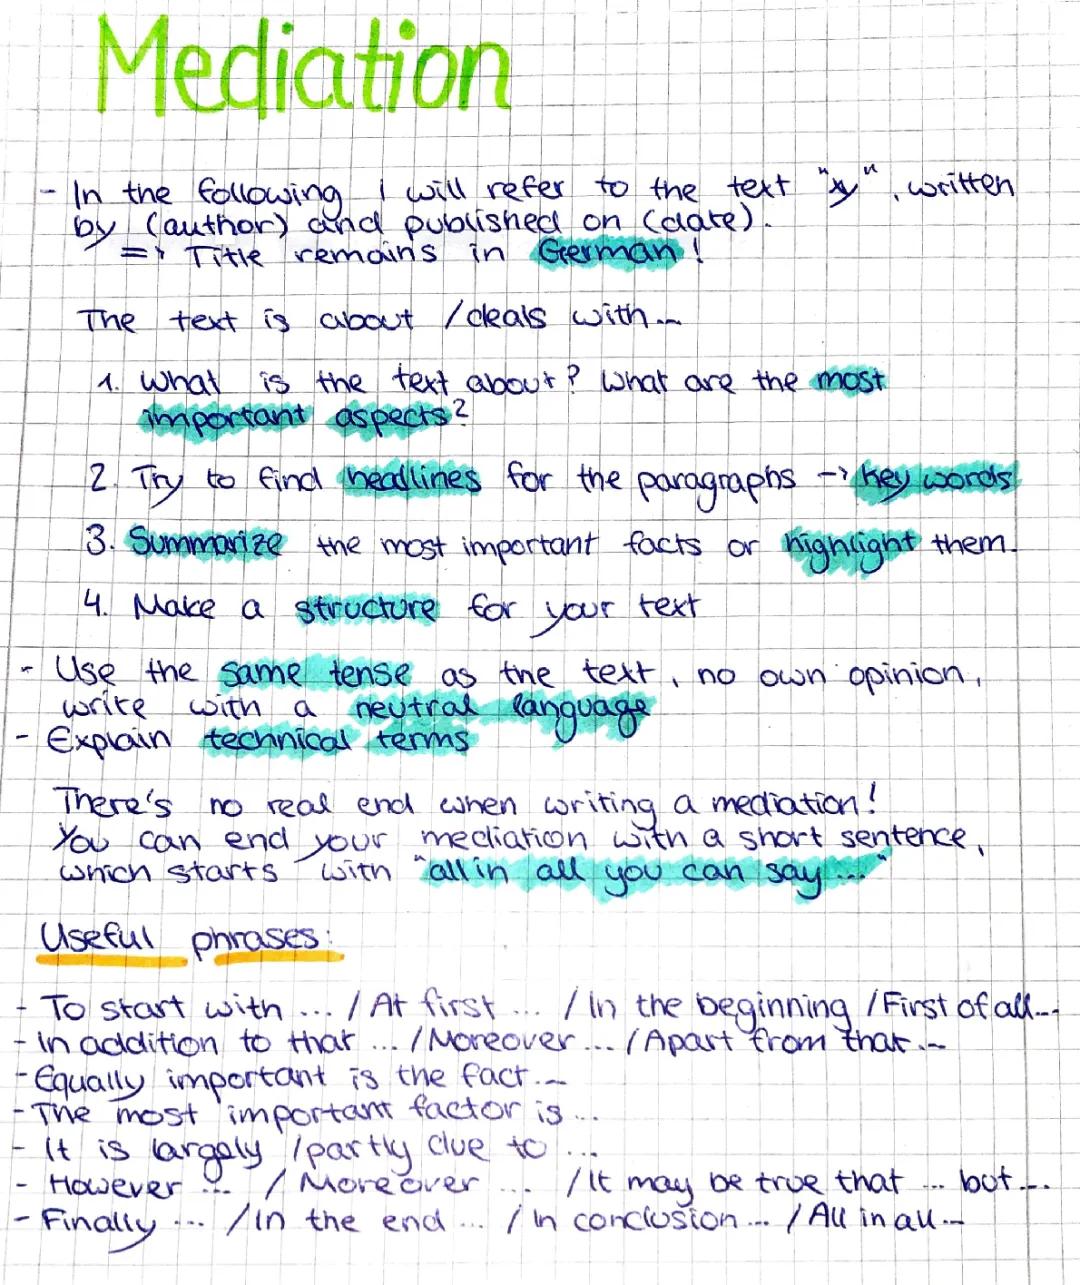 Mediation
- In the following I will refer to the text "xy", written
by (author) and published on (date).
=> Title remains in German!
The text is about / deals with...
1. What is the text about? What are the most
important aspects?
2. Try to find headlines for the paragraphs -> key words
3. Summarize the most important facts or highlight them.
4. Make a structure for your text
- Use the same tense as the text, no own opinion,
write with a neutral language
- Explain technical terms
There's no real end when writing a mediation!
You can end your mediation with a short sentence,
which starts with "all in all you can say..."
Useful phrases:
- To start with ... / At first ... / In the beginning / First of all...
- In addition to that ... / Moreover ... / Apart from that...
- Equally important is the fact...
- The most important factor is...
- It is largely / partly due to ...
- However ... / Moreover ... / It may be true that ... but ...
- Finally ... / In the end ... / In conclusion ... / All in all...